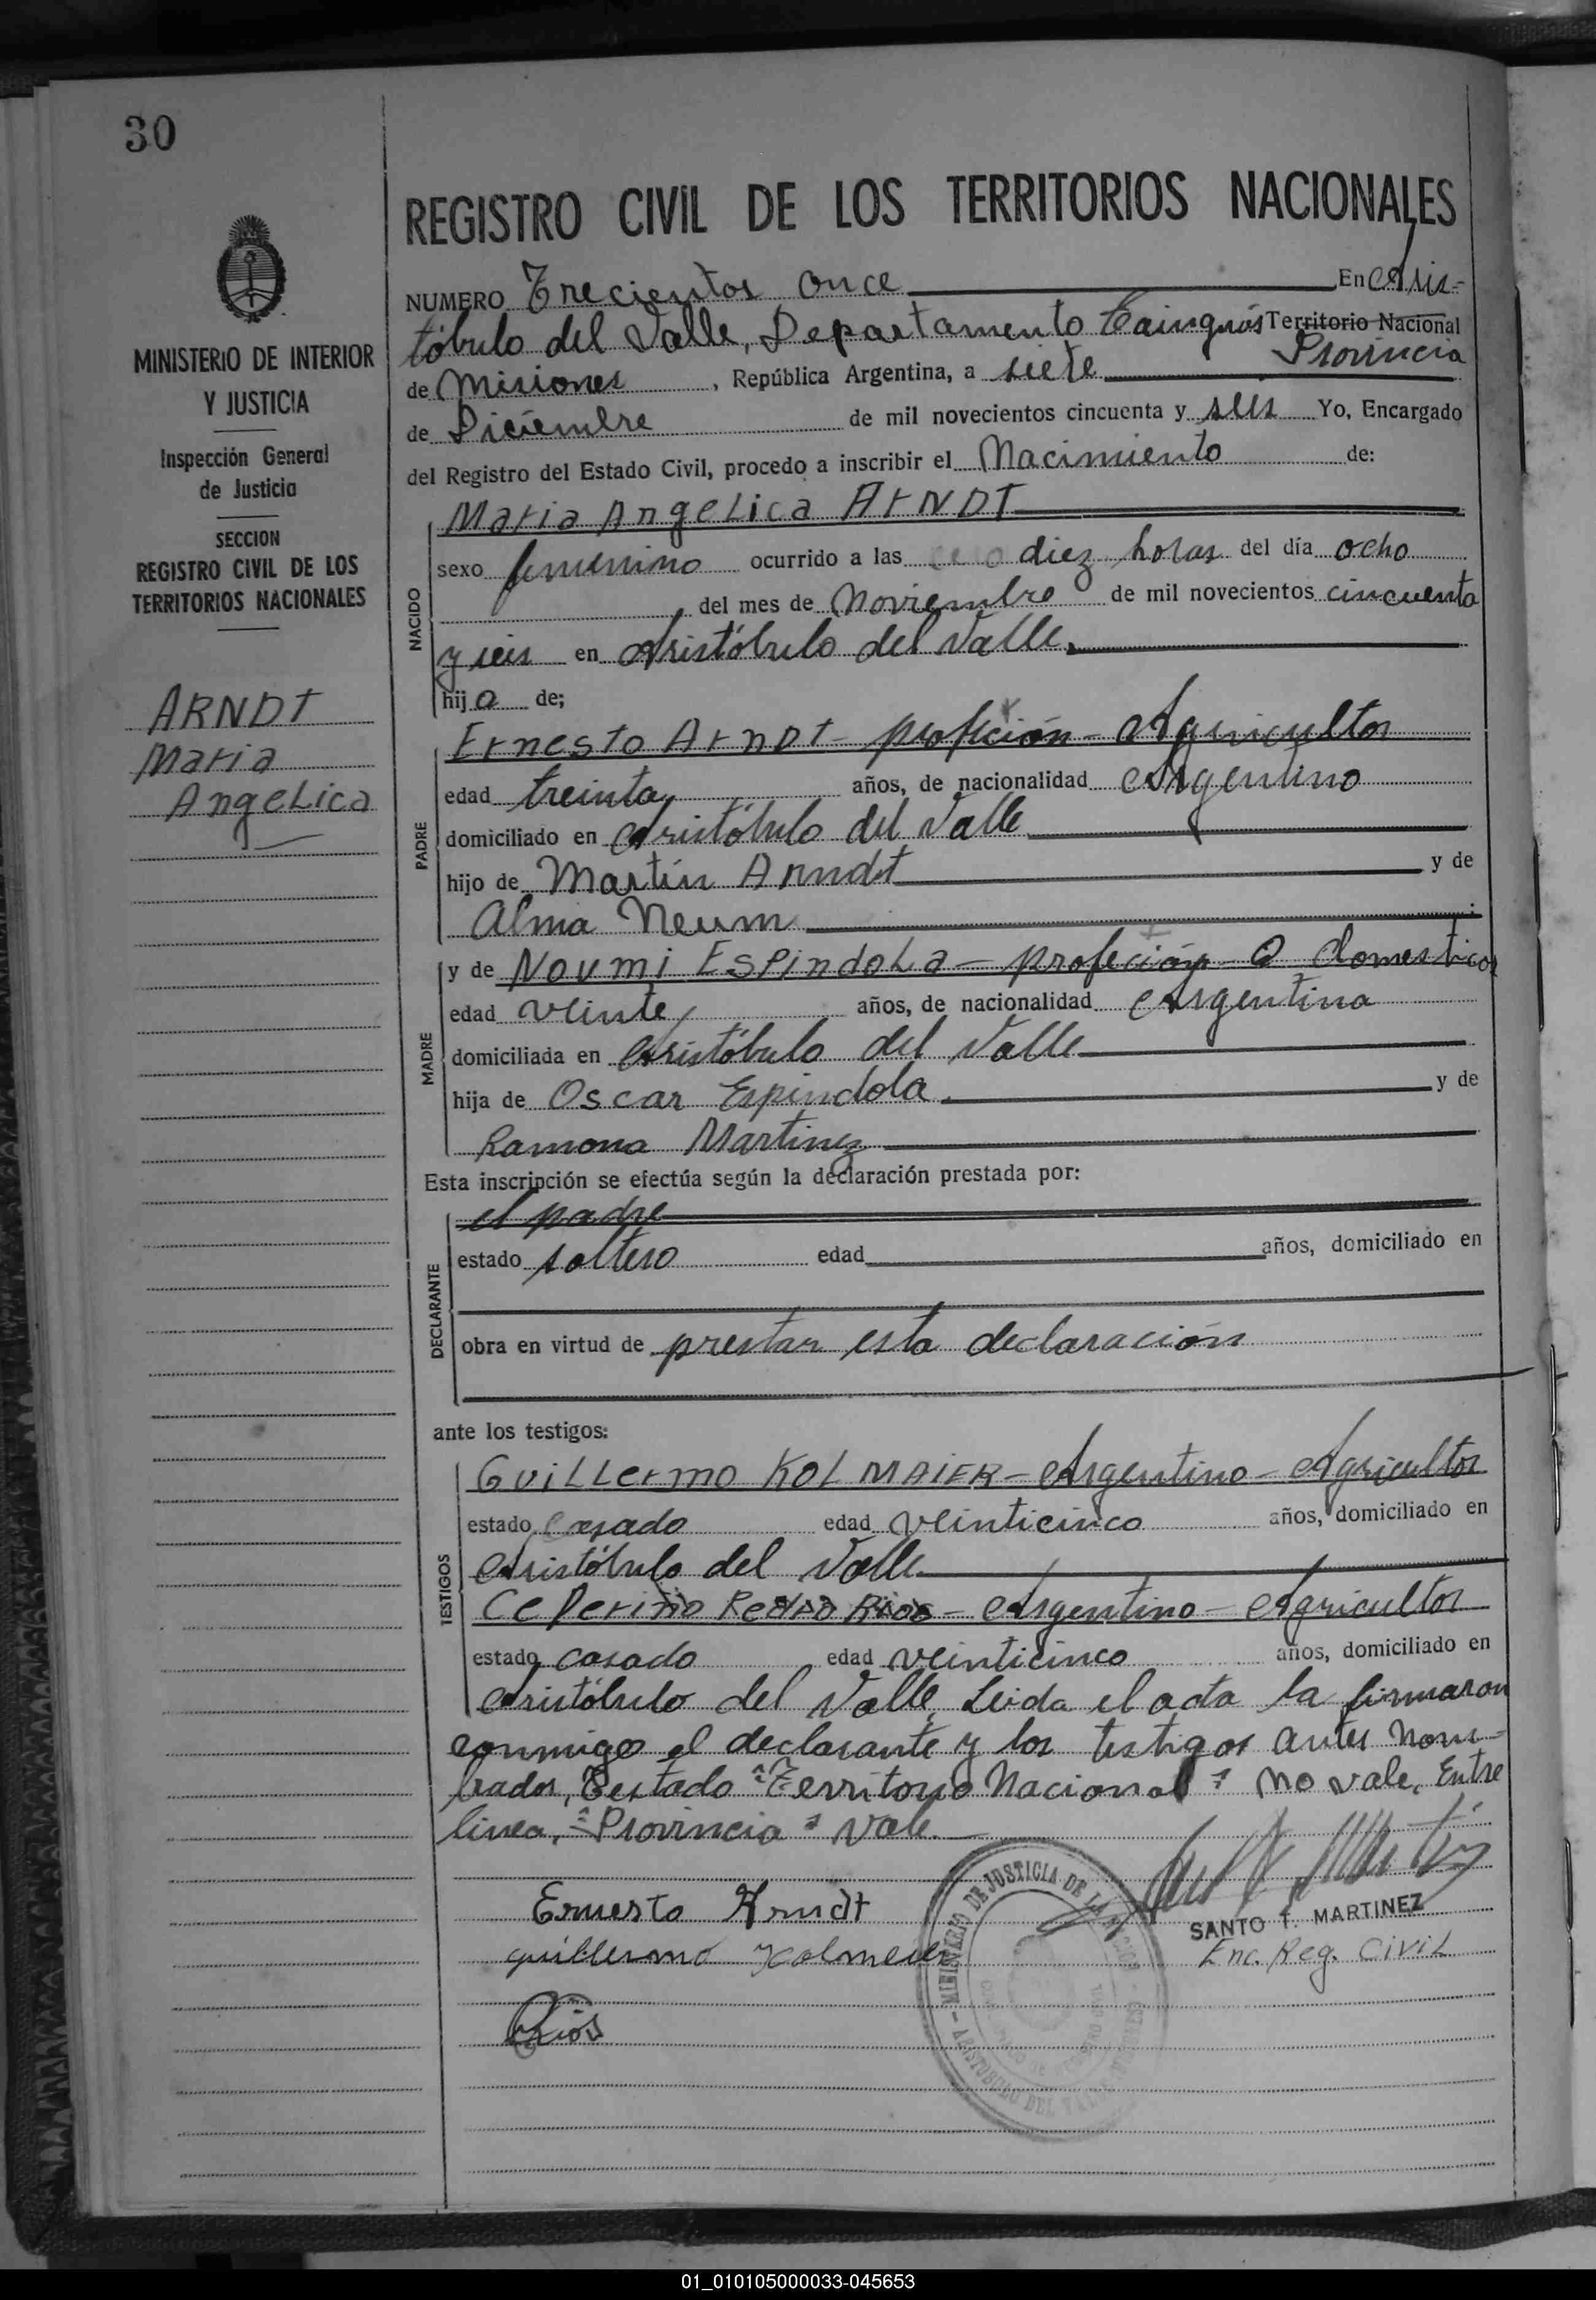 30
REGISTRO CIVIL DE LOS TERRITORIOS NACIONALES
MINISTERIO DE INTERIOR
Y JUSTICIA
Inspección General
de Justicia
SECCION
REGISTRO CIVIL DE LOS
TERRITORIOS NACIONALES
ARNDT
Maria
Angelica
NUMERO Trecientos once En Aris-
tóbulo del Valle, Departamento Cainguás Territorio Nacional
Provincia
de Misiones, República Argentina, a siete
de Diciembre de mil novecientos cincuenta y seis Yo, Encargado
del Registro del Estado Civil, procedo a inscribir el Nacimiento de:
NACIDO
Maria Angelica ArNDT
sexo femenino ocurrido a las diez horas del día ocho
del mes de Noviembre de mil novecientos cincuenta
y seis en Aristóbulo del Valle.
hija de;
PADRE
Ernesto ArnDt - profeción - Agricultor
edad treinta años, de nacionalidad Argentino
domiciliado en Aristóbulo del Valle
hijo de Martín Arndt y de
Alma Neum
MADRE
y de Noymi Espindola - profeción Q domesticos
edad veinte años, de nacionalidad Argentina
domiciliada en Aristóbulo del Valle
hija de Oscar Espindola. y de
Ramona Martinez
Esta inscripción se efectúa según la declaración prestada por:
DECLARANTE
el padre
estado soltero edad años, domiciliado en
obra en virtud de prestar esta declaración
ante los testigos:
TESTIGOS
Guillermo KOLMAIER - Argentino - Agricultor
estado casado edad veinticinco años, domiciliado en
Aristóbulo del Valle
Ceperino Pedro Rios - Argentino - Agricultor
estado casado edad veinticinco años, domiciliado en
Aristóbulo del Valle, Leida el acta la firmaron
conmigo el declarante y los testigos antes nom-
brados, Testado "Territorio Nacional" no vale, Entre
linea, "Provincia" vale.
Ernesto Arndt
SANTO T. MARTINEZ
Enc. Reg. Civil
guillermo Kolmeier
Rios
MINISTERIO DE JUSTICIA DE LA NACION - ARISTOBULO DEL VALLE
01_010105000033-045653